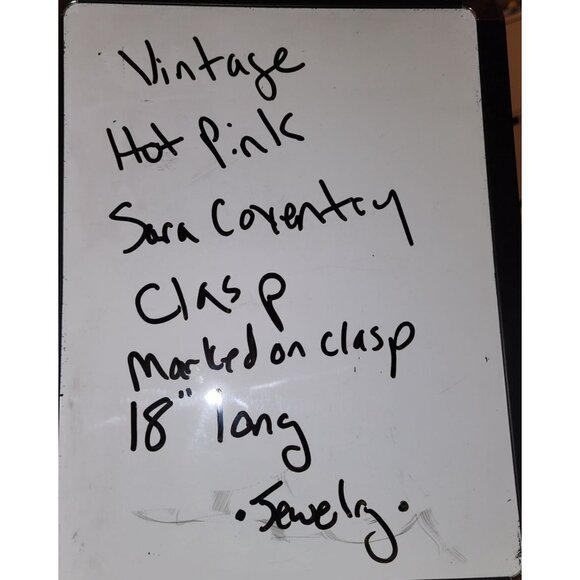 Vintage
Hot Pink
Sara Coventry
Clasp
Marked on clasp
18" long
. Jewelry .